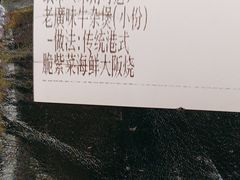 老廣味牛杂煲(小份)
-做法:传统港式
脆紫菜海鲜大阪烧